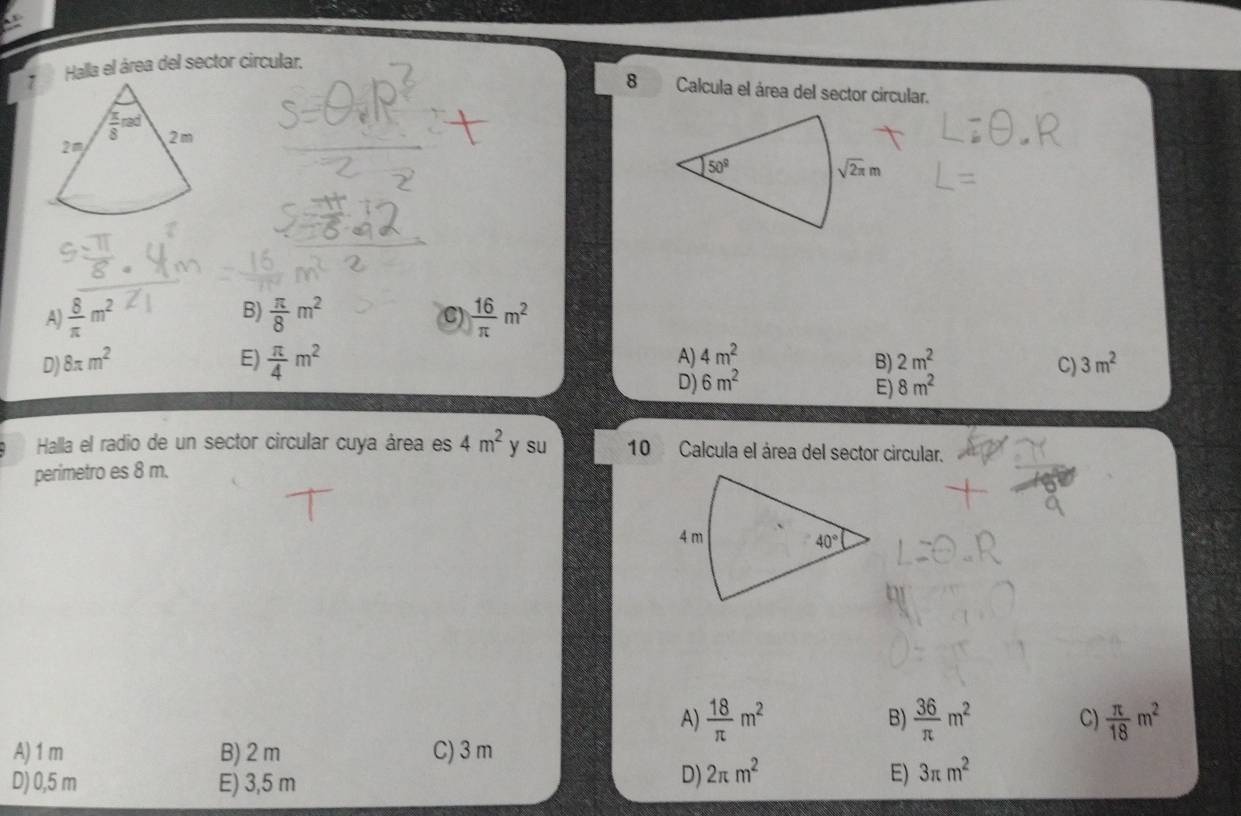 7 Halla el área del sector circular.
π/8 rad
2 m
2 m
S = θ.R² / 2
+
A) 8/π m²
B) π/8 m²
C) 16/π m²
D) 8π m²
E) π/4 m²
8 Calcula el área del sector circular.
50ᵍ
√2π m
+
L = θ.R
L =
A) 4 m²
B) 2 m²
C) 3 m²
D) 6 m²
E) 8 m²
Halla el radio de un sector circular cuya área es 4 m² y su
perimetro es 8 m.
A) 1 m
B) 2 m
C) 3 m
D) 0,5 m
E) 3,5 m
10 Calcula el área del sector circular.
4 m
40°
+
L = θ.R
A) 18/π m²
B) 36/π m²
C) π/18 m²
D) 2π m²
E) 3π m²